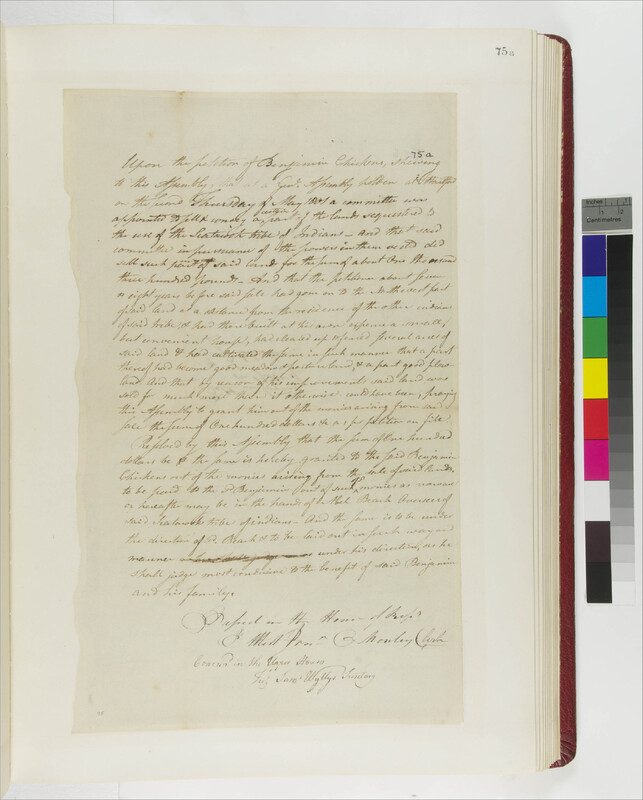 75a
75a
Upon the petition of Benjamin Chickens, shewing
to this Assembly, that at a Genl. Assembly holden at Hartford
on the second Thursday of May a committee was
appointed to sell & convey a certain part of the lands sequestered to
the use of the Scatacook tribe of Indians – And that said
committee in pursuance of the powers in them vested did
sell such part of said land for the sum of about One thousand
three hundred pounds – And that the petitioner about seven
or eight years before said sale had gone on to the Northwest part
of said land at a distance from the residence of the other indians
of said tribe, & had then built at his own expence a small,
but convenient house, had cleared up & fenced several acres of
said land & had cultivated the same in such manner that a part
thereof had become good meadow & pasture land, & a part good plow
land And that by reason of his improvements said land was
sold for much more than it otherwise could have been, praying
this Assembly to grant him out of the monies arising from said
sale the sum of One hundred dollars & as pr petition on file
Resolved by this Assembly that the sum of One hundred
dollars be & the same is hereby granted to the said Benjamin
Chickens out of the monies arising from the sale of said lands
to be paid to the sd Benjamin out of such monies as now are
or hereafter may be in the hands of Abel Beach Overseer of
said Scatacook tribe of indians – And the same is to be under
the direction of sd. Beach & to be laid out in such way and
manner under his direction, as he
shall judge most conducive to the benefit of said Benjamin
and his family.
Passed in the House of Reps
Test Jon C Manley Clerk
Concurred in the Upper House
Test Saml Wyllys Secretary
Inches
Centimetres